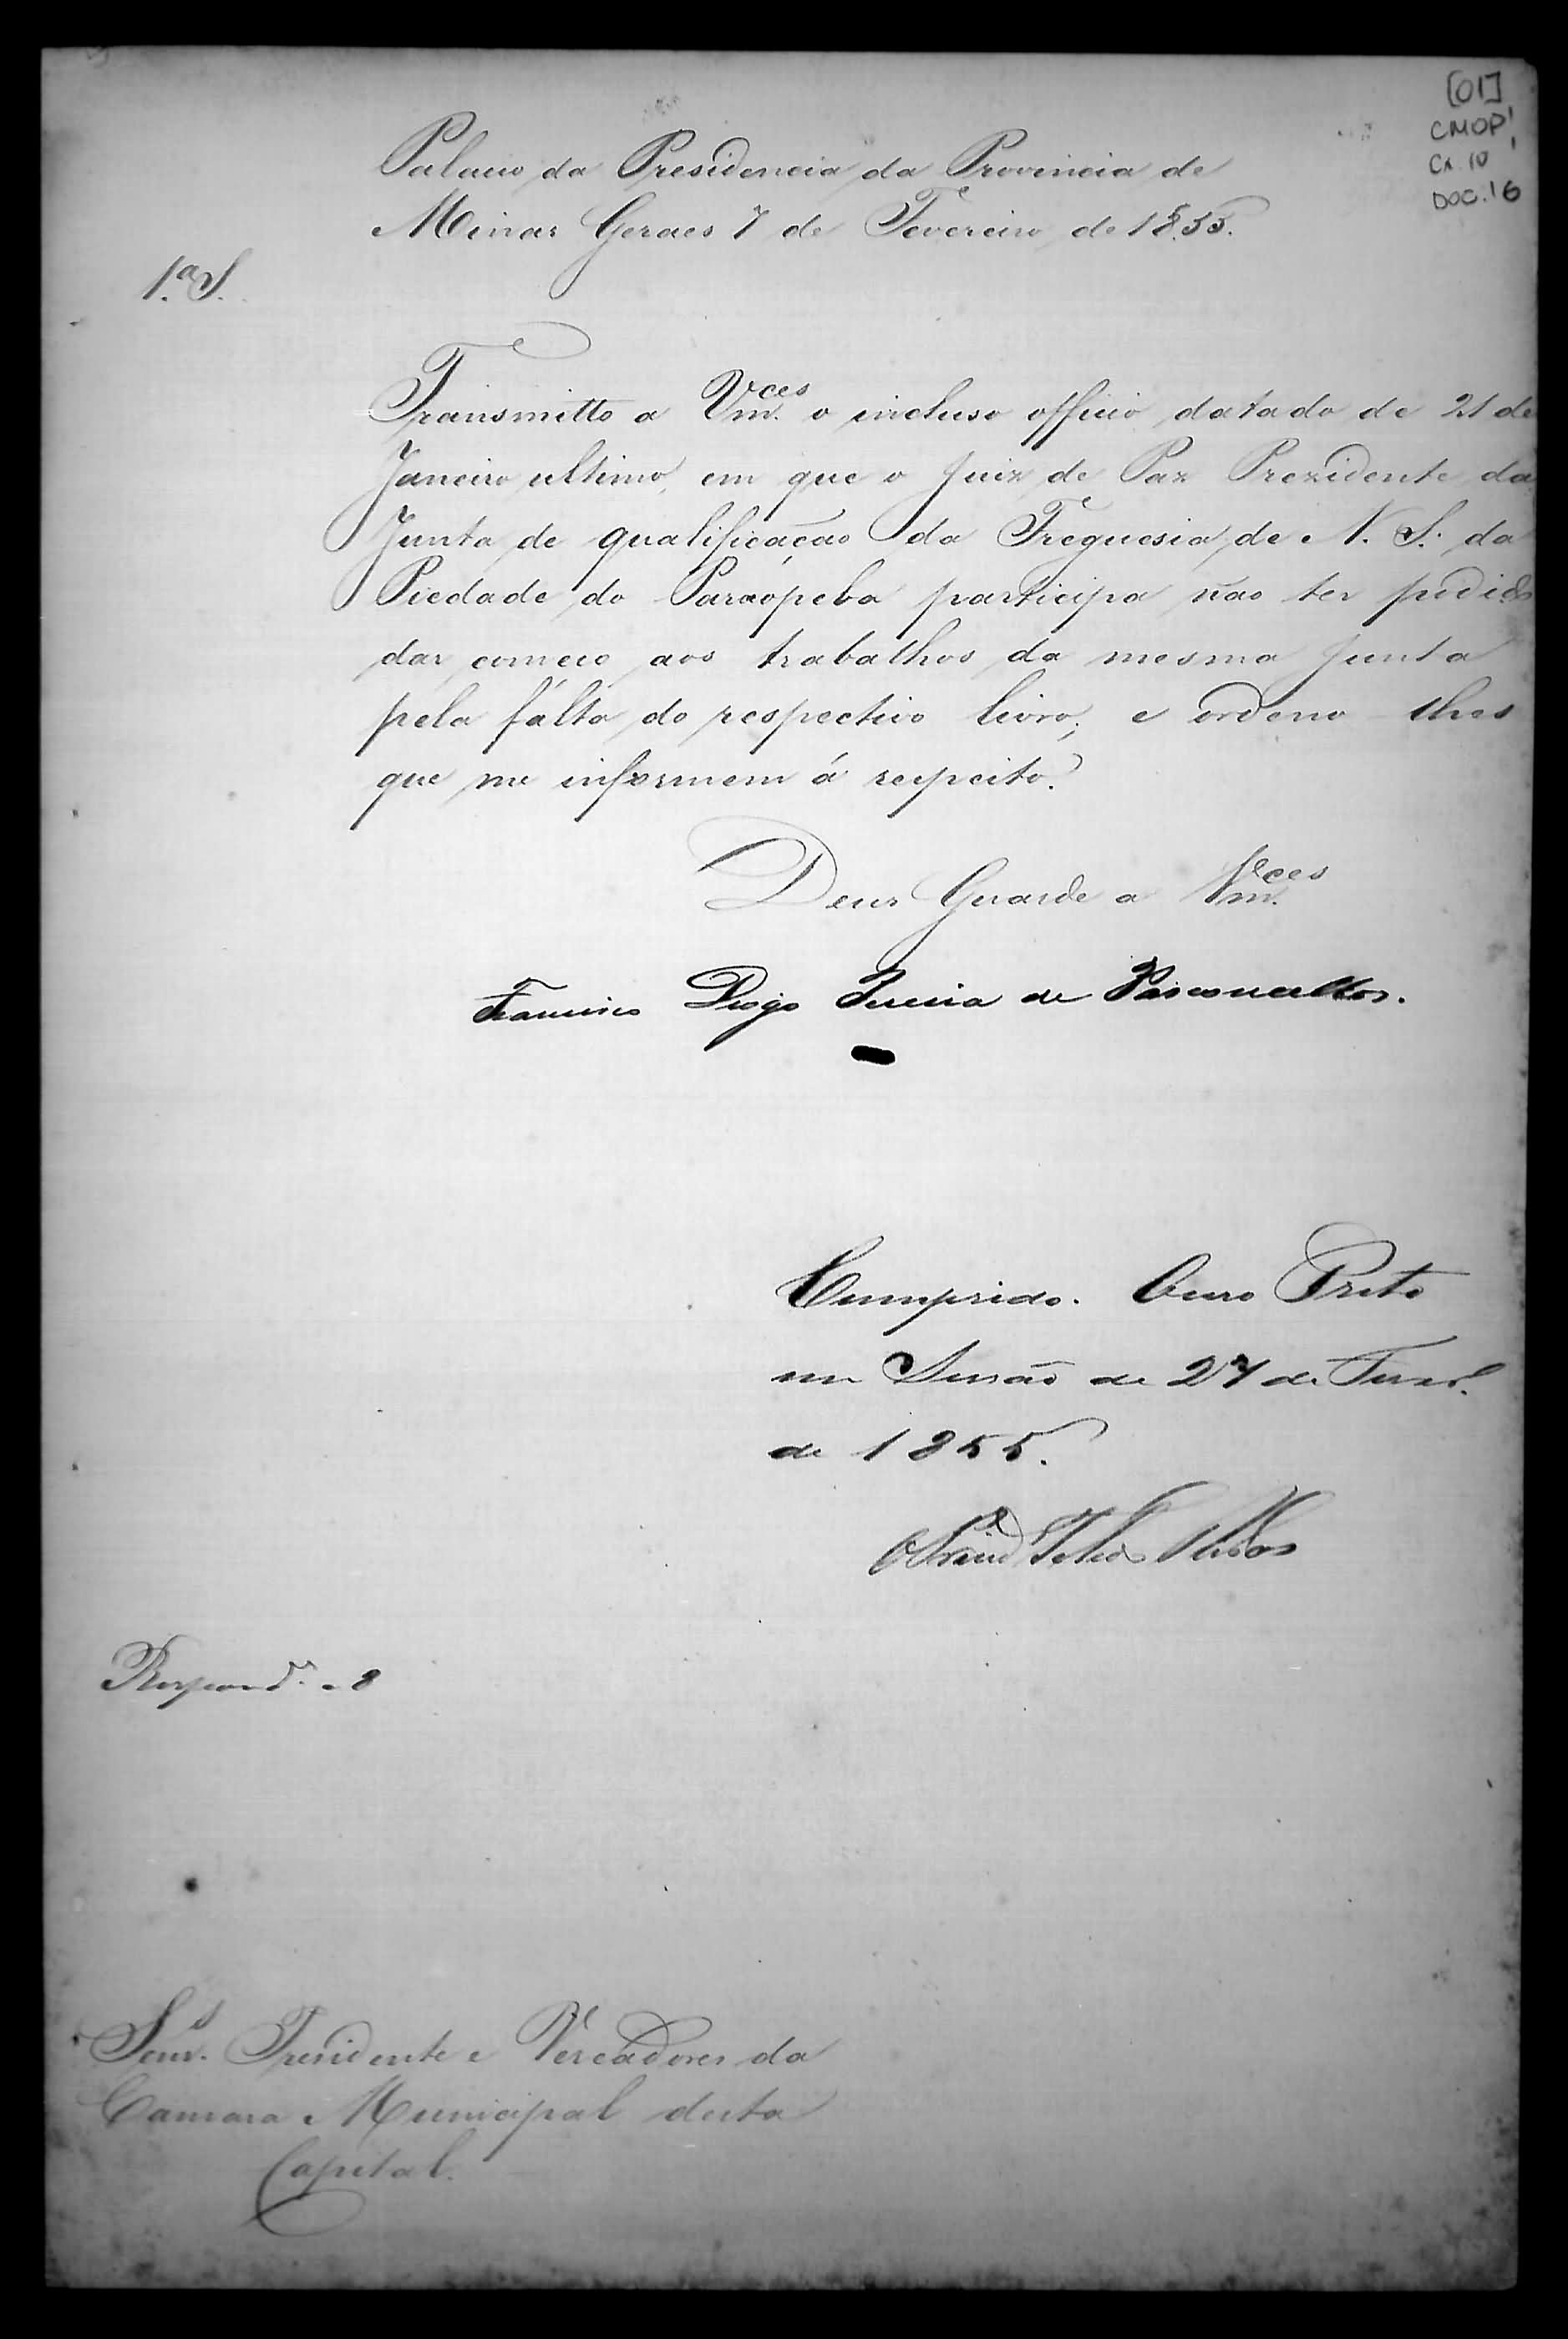 [01]
CMOP
CX.10
DOC.16
Palacio da Presidencia da Provincia de
Minas Geraes 7 de Fevereiro de 1855.
1.ª S.
Transmitto a Vm.ces o incluso officio datado de 21 de
Janeiro ultimo, em que o Juiz de Paz Prezidente da
Junta de qualificação da Freguesia de N. S. da
Piedade do Paraópeba participa não ter podido
dar comeco aos trabalhos da mesma Junta
pela fálta do respectivo livro; e ordeno lhes
que me informem á respeito.
Deus Guarde a Vm.ces
Francisco Diogo Pereira de Vasconcellos.
Cumprido. Ouro Preto
em Sessão de 27 de Fever.º
de 1855.
Respond.º a 8
Senr.s Presidente e Vereadores da
Camara Municipal desta
Capital.